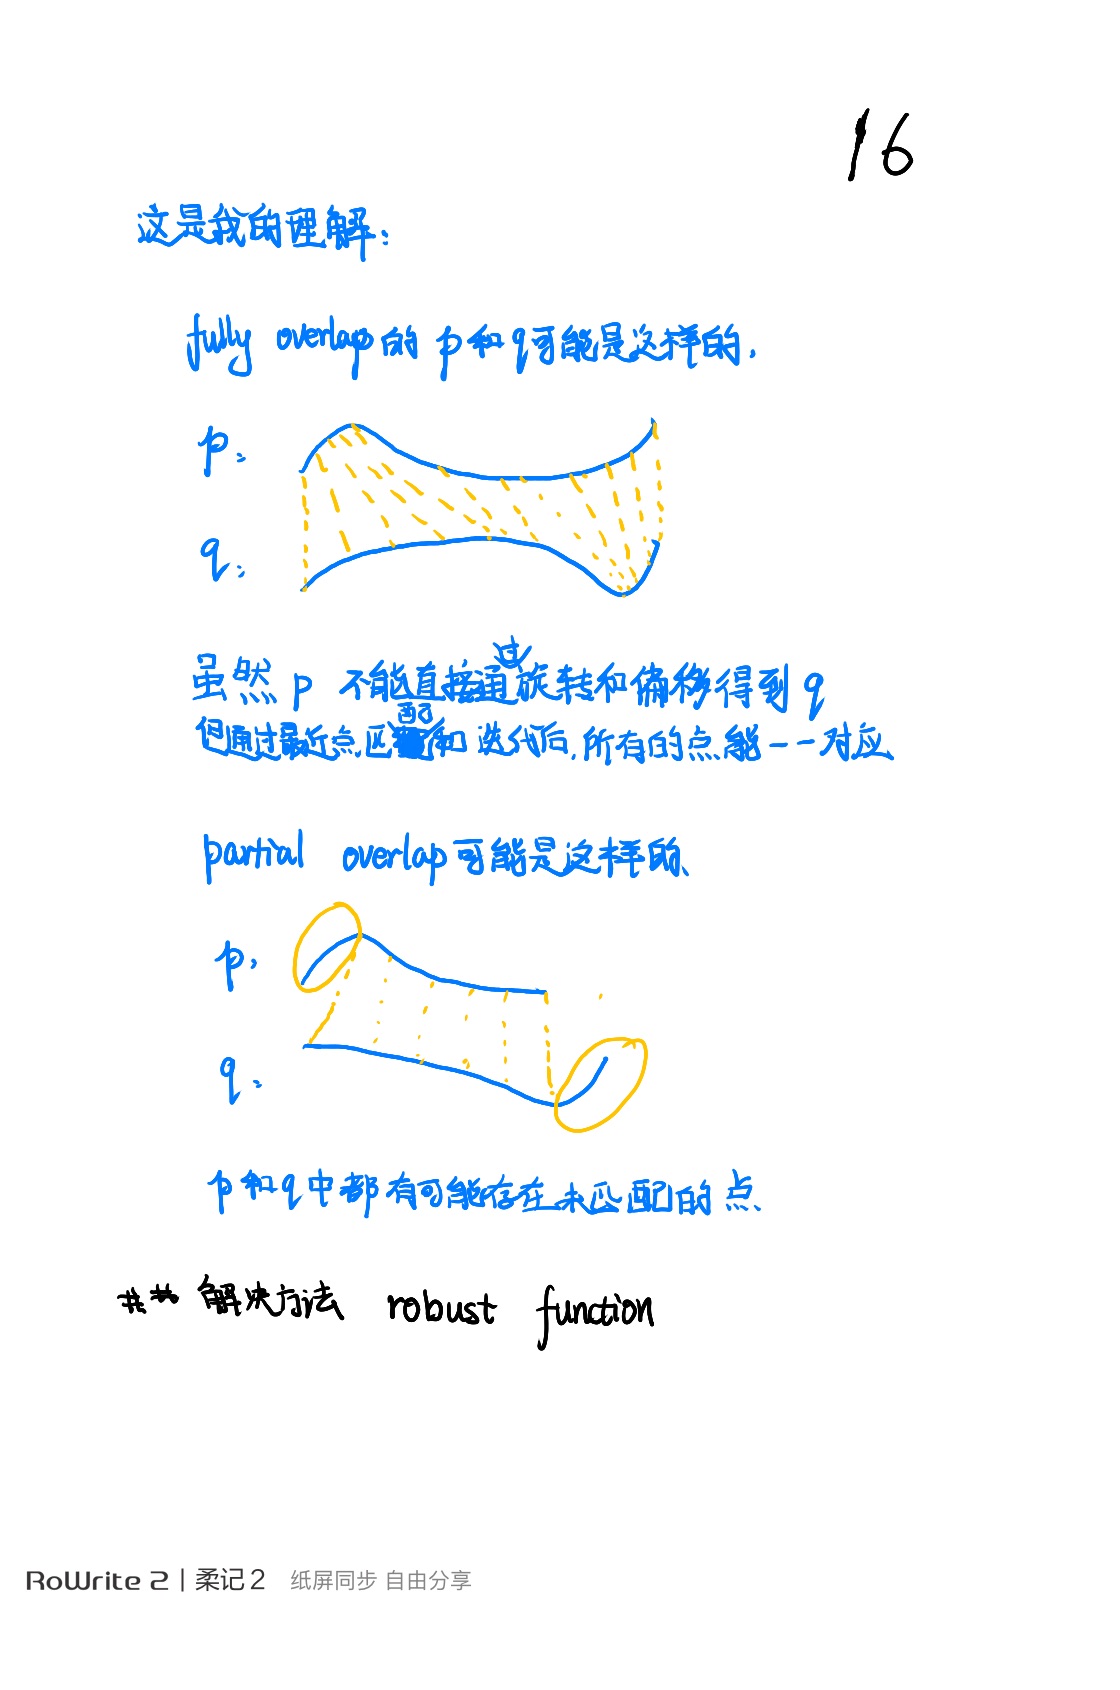 16
这是我的理解:
fully overlap的 p和q可能是这样的,
p:
q:
虽然 p 不能直接通过旋转和偏移得到 q
但通过最近点匹配和迭代后,所有的点能一一对应
partial overlap可能是这样的、
p:
q:
p和q中都有可能存在未匹配的点、
** 解决方法 robust function
RoWrite 2 | 柔记 2 纸屏同步 自由分享